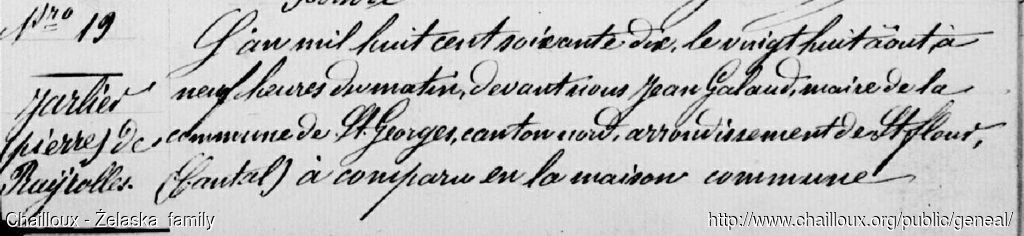 Nro 19
Jarlier
(pierre) de
Ruyrolles.
L'an mil huit cent soixante dix, le vingt huit août, à
neuf heures du matin, devant nous Jean Galaud, maire de la
commune de St Georges, canton nord, arrondissement de St flour,
(Cantal) à comparu en la maison commune
Chailloux - Żelaska family
http://www.chailloux.org/public/geneal/